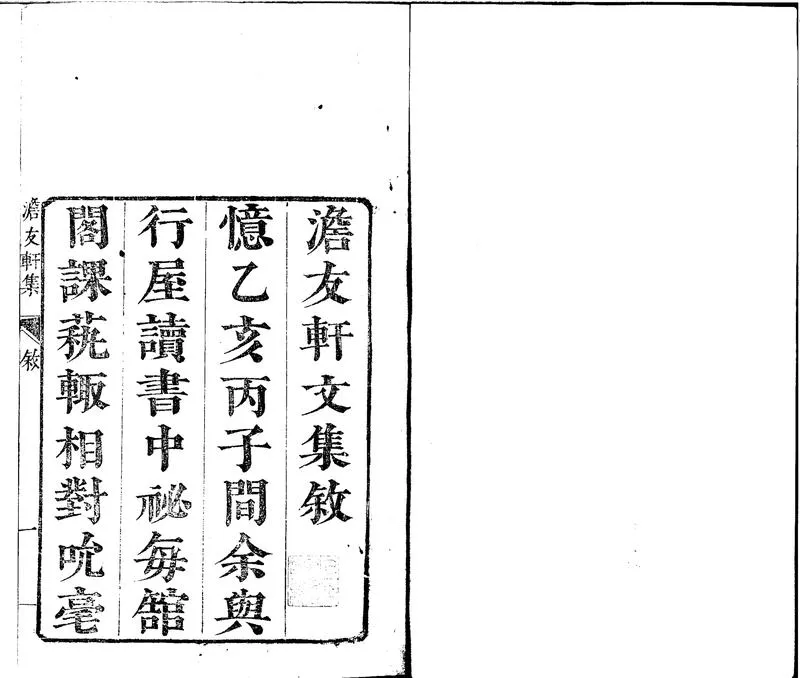 澹友軒文集敘
憶乙亥丙子間余與
行屋讀書中祕每舘
閣課蓺輙相對吮毫
澹友軒集
敘
一